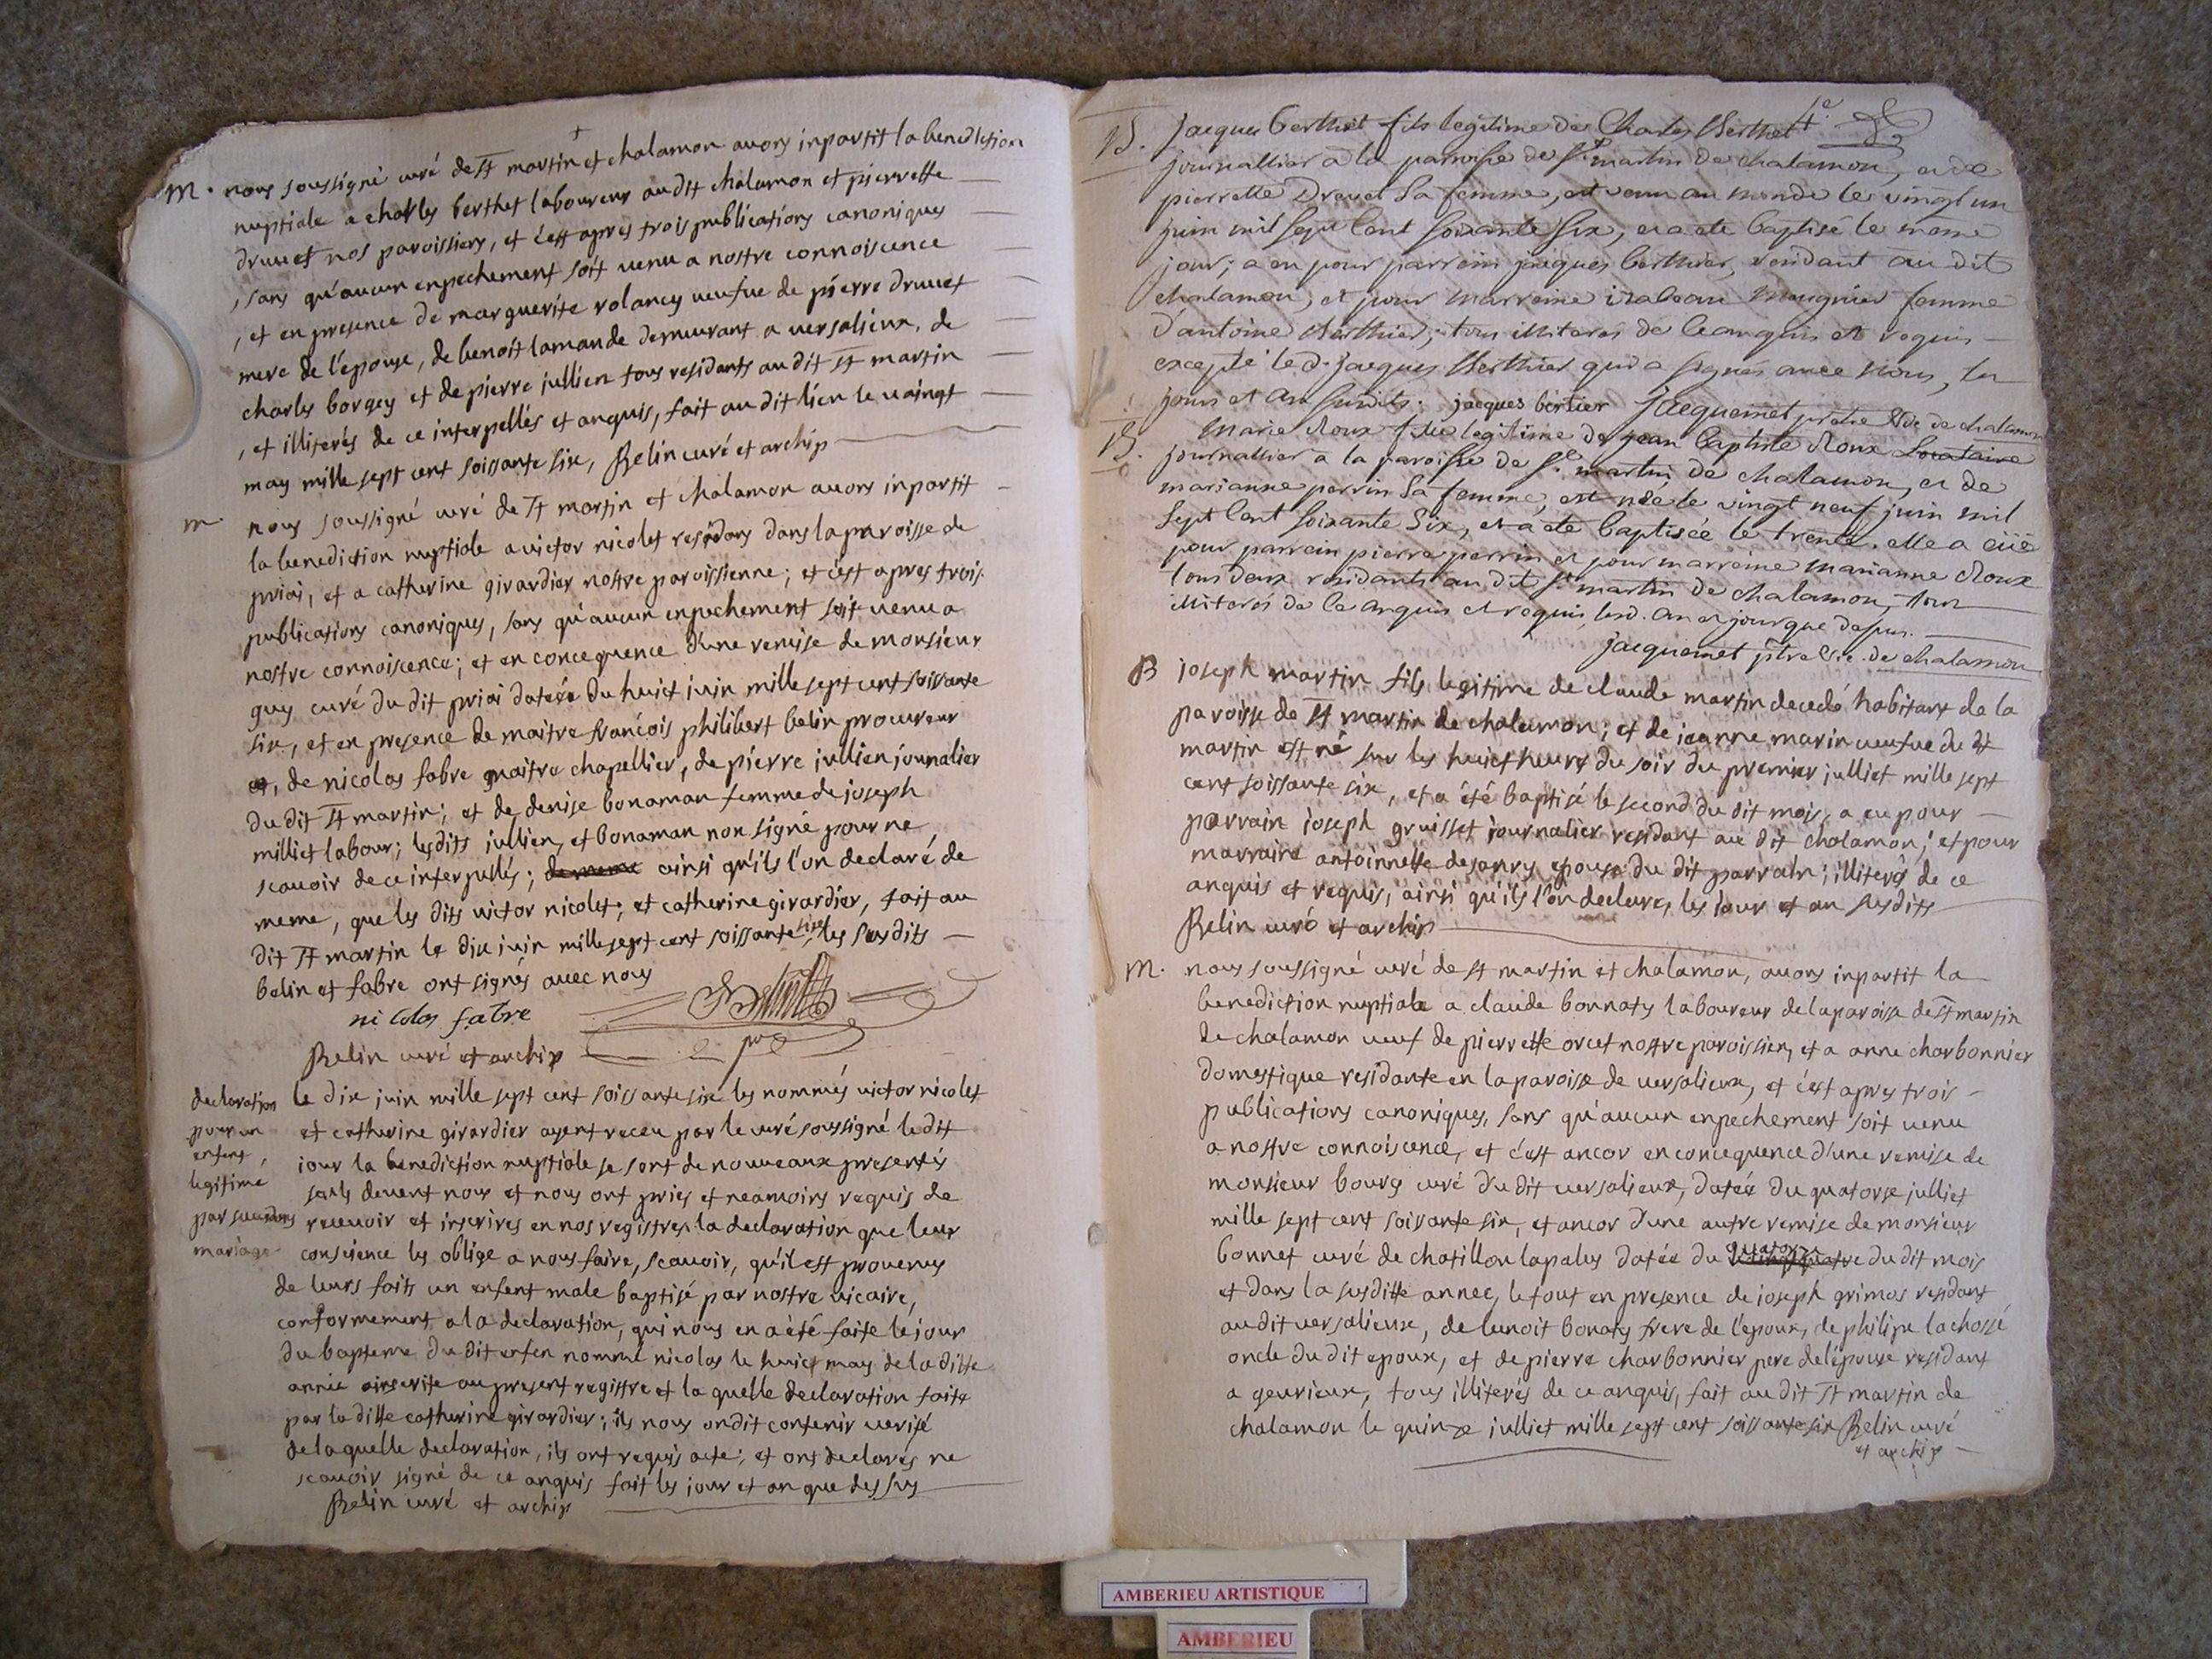 M. nous soussigné curé de St martin et chalamon avons inpartit la benediction
nuptiale a charles berthet laboureur audit chalamon et pierrette
druuet nos paroissiens, et c'est apres trois publications canoniques
, sans qu'aucun enpechement soit venu a nostre connoiscence
, et en presence de marguerite rolancy veufue de pierre druuet
mere de l'epouse, de benoit lamande demeurant a versalieux, de
charles borgey et de pierre jullien tous residants au dit St martin
, et illiterés de ce interpellés et anquis, fait au dit lieu le vaingt
may mille sept cent soissante six, Belin curé et archip
m nous soussigné curé de St martin et chalamon avons inpartit
la benediction nuptiale a victor nicolet residans dans la paroisse de
priai, et a catherine girardier nostre paroissienne; et c'est apres trois
publications canoniques, sans qu'aucun enpechement soit venu a
nostre connoiscence; et en concequence d'une remise de monsieur
guy curé du dit priai datée du huict juin mille sept cent soissante
six, et en presence de maitre francois philibert belin procureur
et, de nicolas fabre maitre chapellier, de pierre jullien journalier
du dit St martin; et de denise bonaman femme de joseph
milliet labour; lesdits jullien, et bonaman non signé pour ne
scauoir de ce interpellés; de meme ainsi qu'ils l'on declaré de
meme, que les dits victor nicolet; et catherine girardier, fait au
dit St martin le dix juin mille sept cent soissante six, les susdits
belin et fabre ont signés avec nous
nicolas fabre
Belin curé et archip
declaration
pour un
enfent,
legitime
par
mariage
le dix juin mille sept cent soissante six les nommés victor nicolet
et catherine girardier ayent receu par le curé soussigné le dit
iour la benediction nuptiale se sont de nouveaux presentés
devent nous et nous ont priés et neamoins requis de
receuoir et inscrires en nos registres la declaration que leur
consience les oblige a nous faire, scauoir, qu'il est prouenus
de leurs faits un enfent male baptisé par nostre vicaire,
conformement a la declaration, qui nous en a été faite le jour
du bapteme du dit enfen nommé nicolas le huict may de la ditte
année au present registre et la quelle declaration faite
par la ditte catherine girardier; ils nous ondit contenir verité
de laquelle declaration, ils ont requis acte; et ont declarés ne
scauoir signé de ce anquis fait les jour et an que dessus
Belin curé et archip
B. jacques berthet fils legitime de Charles Berthet
journallier a la parroisse de St martin de chalamon, et de
pierrette Drevet Sa femme, est venu au monde le vingt un
juin mil Sept Cent Soixante Six, et a ete baptisé le meme
jour; a eu pour parrein jacques berthier, residant au dit
chalamon, et pour marreine izabeau femme
d'antoine Berthier; tous illiteres de ce anquis et requis
excepté le d. jacques Berthier qui a signés avec Nous, les
jours et an Susdits. jacques bertier jacquemet pretre de chalamon
B. Marie Roux fille legitime de jean baptiste Roux
journallier a la paroisse de St. martin de chalamon, et de
marianne perrin Sa femme, est née le vingt neuf juin mil
Sept Cent Soixante Six, et a ete baptisée le trente. elle a eüe
pour parrein pierre perrin et pour marreine Marianne Roux
tous deux residants au dit St. martin de chalamon, tous
illiterés de ce anquis et requis, lesd. an et jour que dessus.
jacquemet ptre Vic. de chalamon
B joseph martin fils legitime de claude martin decedé habitant de la
paroisse de St martin de chalamon; et de jeanne marin veufue du dt
martin est né sur les huict heures du soir du premier julliet mille sept
cent soissante six, et a été baptisé le second du dit mois, a eu pour
parrain joseph gruisset journalier residant au dit chalamon; et pour
marraine antoinnette desanry epouse du dit parrain; illiterés de ce
anquis et requis, ainsi qu'ils l'on declare, les iour et an susdits
Belin curé et archip
M. nous soussigné curé de St martin et chalamon, avons inpartit la
benediction nuptiale a claude bonnaty laboureur de la paroisse de St martin
de chalamon veuf de pierrette orcet nostre paroissien, et a anne charbonnier
domestique residante en la paroisse de versalieux, et c'est apres trois
publications canoniques, sans qu'aucun enpechement soit venu
a nostre connoiscence, et c'est ancor en concequence d'une remise de
monsieur bourg curé du dit versalieux, datée du quatorse julliet
mille sept cent soissante six, et ancor d'une autre remise de monsieur
bonnet curé de chatillon lapalus datée du quatorze du dit mois
et dans la susditte annee, le tout en presence de joseph grimos residant
audit versalieux, de benoit bonaty frere de l'epoux, de philipe lachassé
oncle du dit epoux, et de pierre charbonnier pere de l'epouse residant
a geurieux, tous illiterés de ce anquis, fait au dit St martin de
chalamon le quinze julliet mille sept cent soissante six Belin curé
et archip
AMBERIEU ARTISTIQUE
AMBERIEU